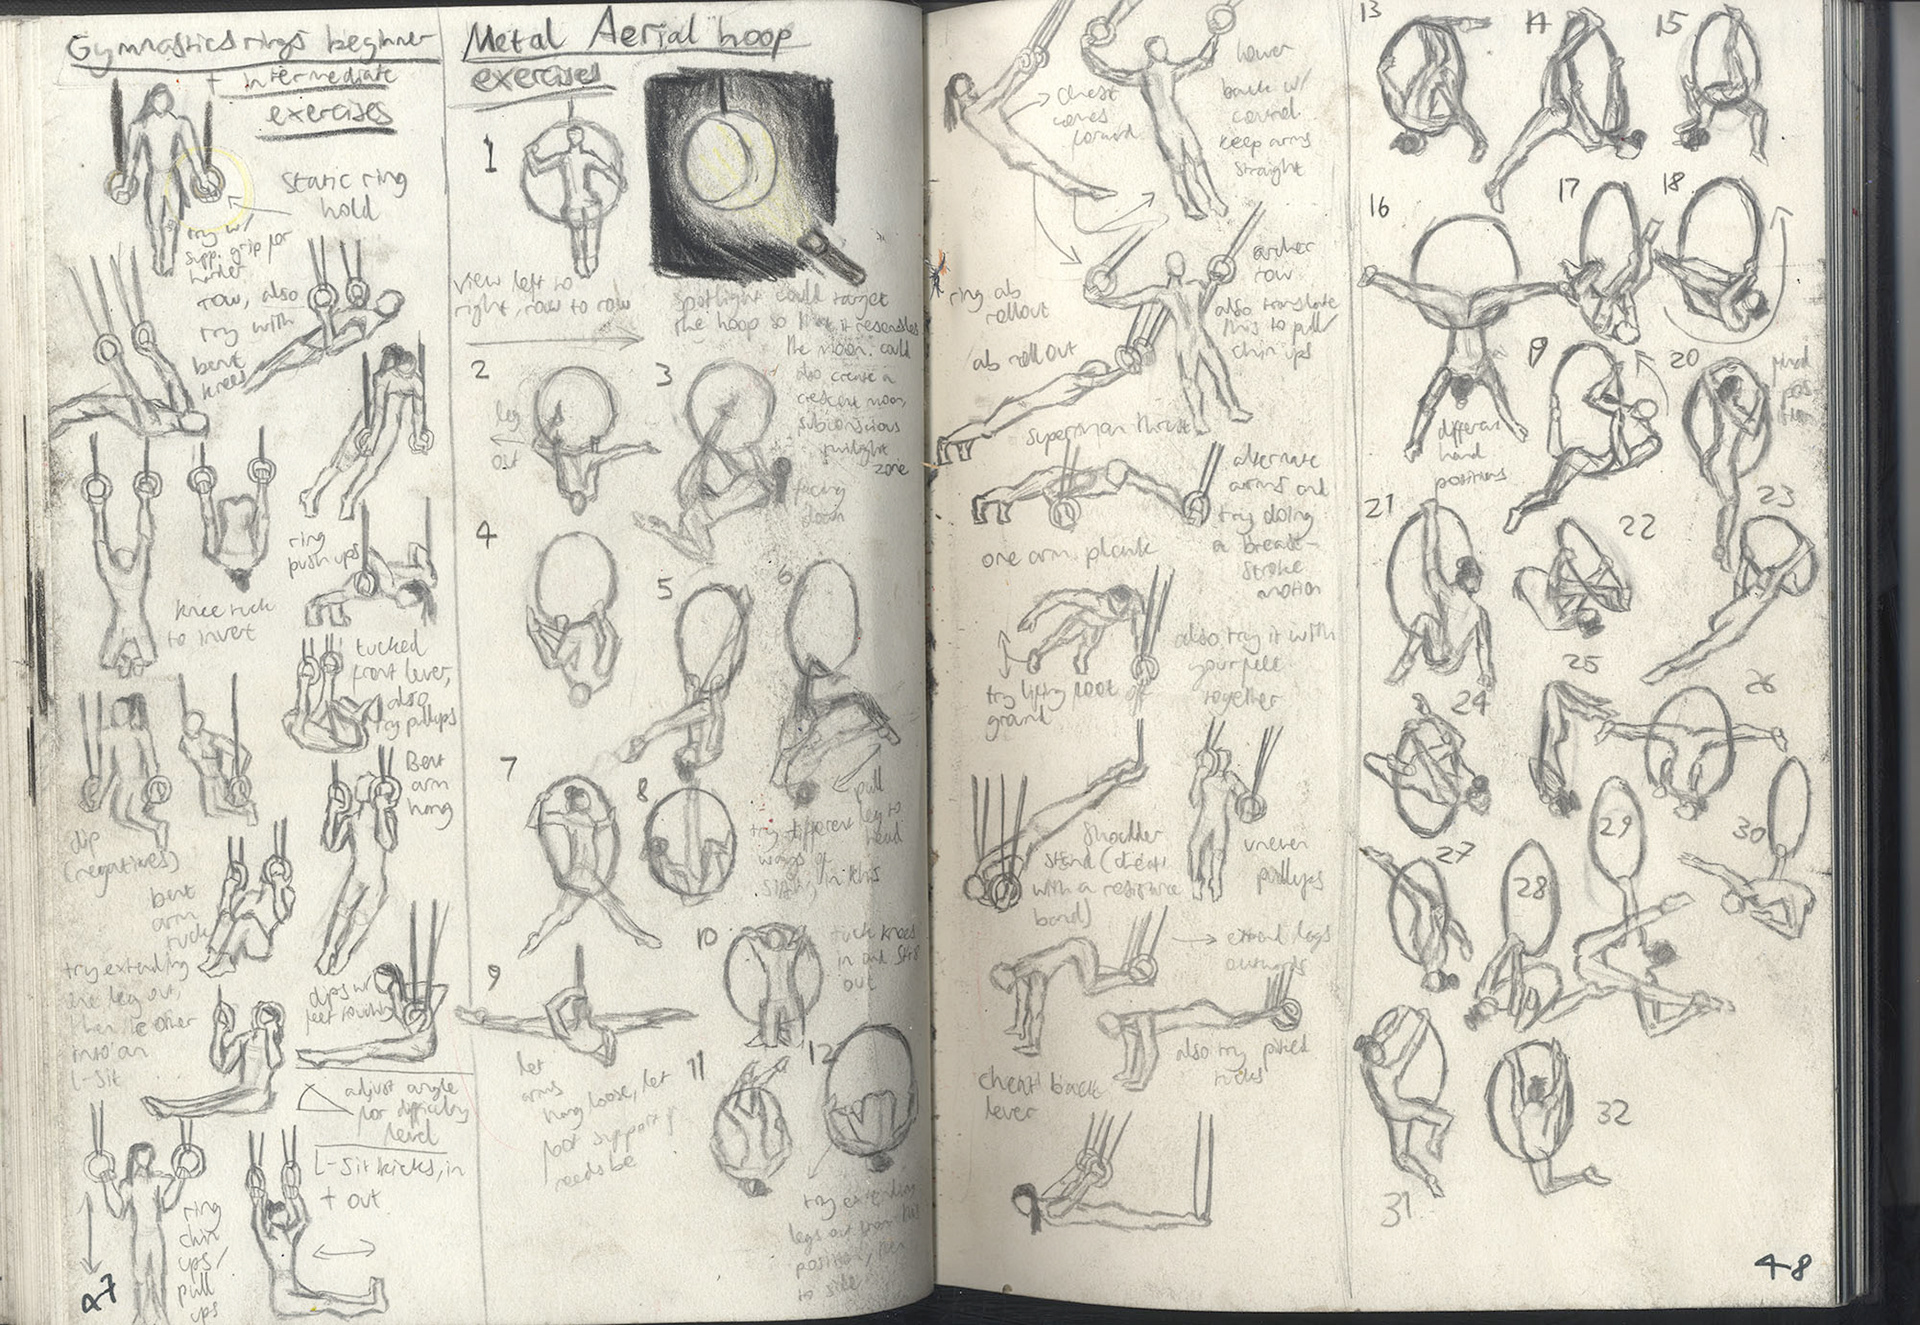 Gymnastics rings beginner
+ intermediate
exercises
static ring
hold
try w/
supp. grip for
harder
row, also
try with
bent
knees
ring
pushups
knee tuck
to invert
tucked
front lever,
also
try pullups
Bent
arm
hang
dip
(negatives)
bent
arm
tuck
try extending
one leg out,
then the other
into an
L-sit
dips w/
feet touching
adjust angle
for difficulty
level
L-sit kicks, in
+ out
ring
chin
ups/
pull
ups
47
Metal Aerial hoop
exercises
1
view left to
right, row to row
spotlight could target
the hoop so that it resembles
the moon. could
also create a
crescent moon,
subconscious
twilight
zone
2
leg
out
3
facing
down
4
5
6
pull
leg to
head
7
8
try different
ways of
sitting in this
9
let
arms
hang loose, let
foot support if
needs be
10
tuck knees
in and
out
11
12
try extending
legs out from this
position, then
to side
chest
comes
forward
lower
back w/
control
keep arms
straight
ring ab
rollout
archer
row
also translate
this to pull/
chin ups
ab roll out
superman thrust
alternate
arms and
try doing
a breast-
stroke
motion
one arm plank
also try it with
your feet
together
try lifting foot off
ground
shoulder
stand (cheat
with a resistance
band)
uneven
pullups
extend legs
outwards
also try piked
tucks
cheat back
lever
13
14
15
16
different
hand
positions
17
18
19
20
21
22
23
24
25
26
27
28
29
30
31
32
48